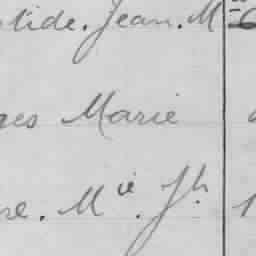 lide. Jean. M
es Marie
re. M ie. Jh.